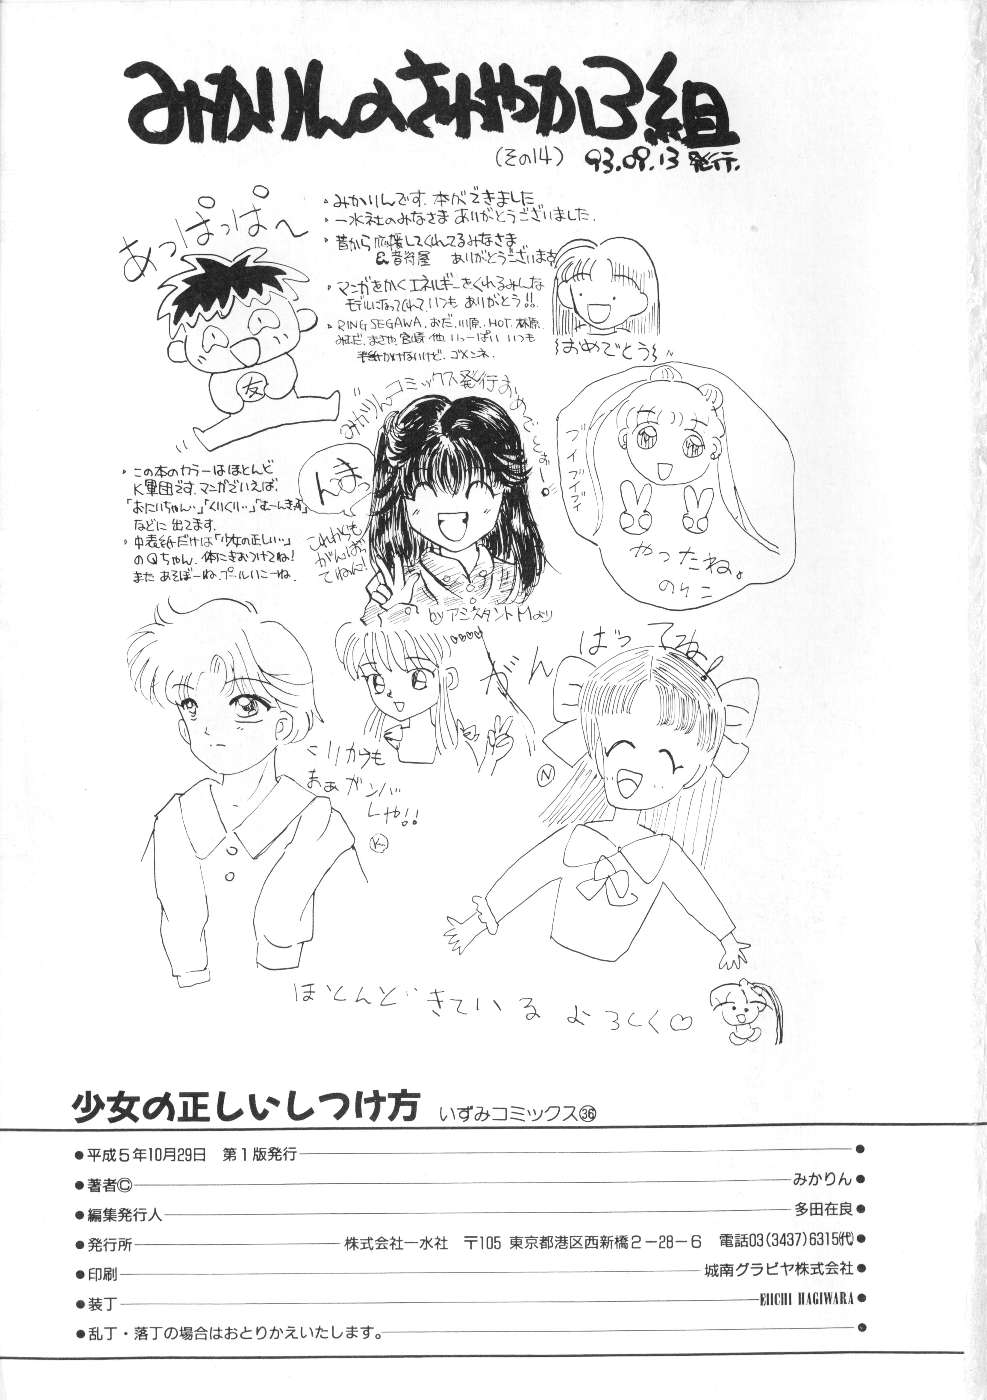 みかりんのさわやか3組
(その14) 93.09.13 発行.
あっぱっぱ〜
・みかりんです. 本ができました
・一水社のみなさま ありがとうございました.
・昔から応援してくれてるみなさま
& 音符屋 ありがとうございます
・マンガをかくエネルギーをくれるみんな
モデルになってくれて、いつも ありがとう!!.
・RING SEGAWA、おだ、川原、HOT、林原、
みはだ、まさや、宮崎 他 いっーぱい いつも
手紙かけないけど、ゴメンネ.
おめでとう
友
みかりんコミックス発行おめでとぉー!
まっ
ん
これからも
がんばっ
てねん!
by アシスタントMより
ブイブイブイ
やったね。
のりこ
・この本のカラーはほとんど
K軍団です. マンガでいえば、
「おにいちゃん…」「くりくり…」「むーんきっず」
などに 出てます.
・中表紙だけは「少女の正しい…」
のQちゃん. 体にきをつけてね!
また あそぼーね. プールいこーね.
がんばってね!
N
こりからも
まぁガンバ
しや!!
K
ほとんど、きている よろしく♡
少女の正しいしつけ方 いずみコミックス㊱
●平成5年10月29日 第1版発行 ●
●著者© みかりん●
●編集発行人 多田在良●
●発行所 株式会社一水社 〒105 東京都港区西新橋2−28−6 電話03(3437)6315㈹●
●印刷 城南グラビヤ株式会社●
●装丁 EIICHI HAGIWARA●
●乱丁・落丁の場合はおとりかえいたします。 ●